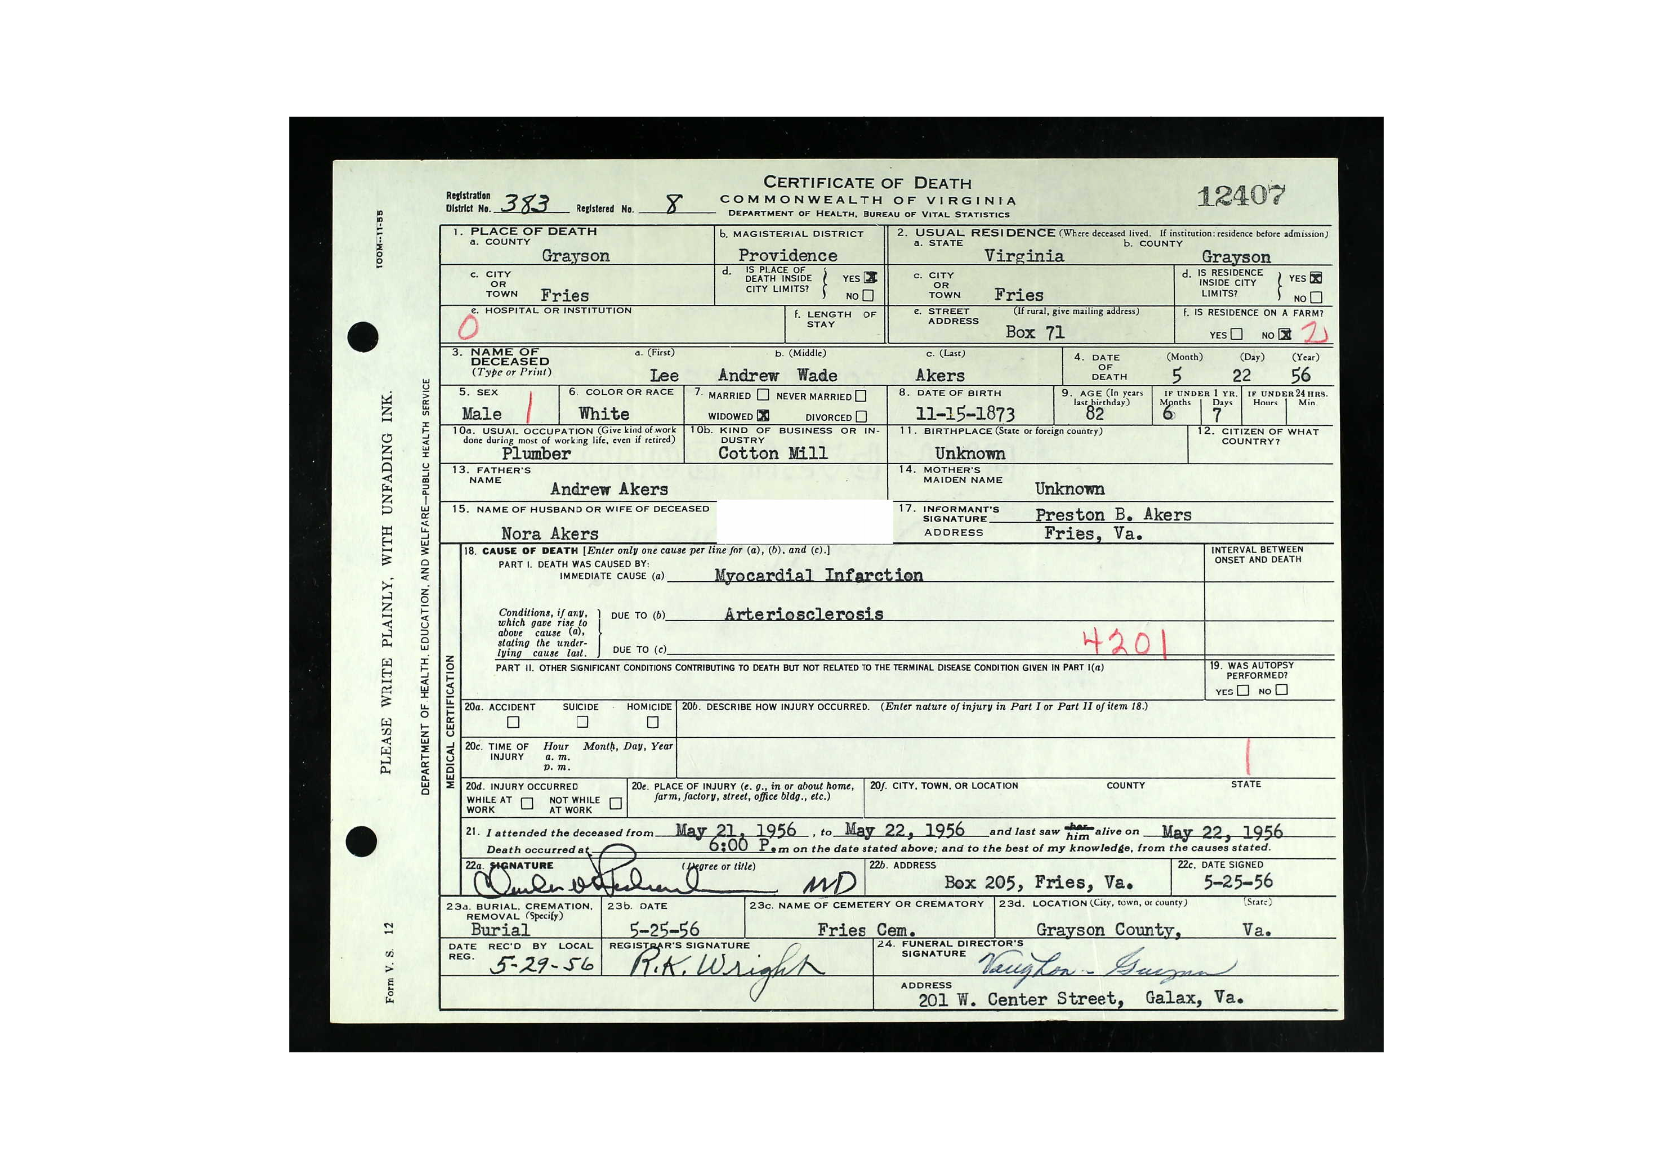 CERTIFICATE OF DEATH
12407
Registration District No. 383 Registered No. 8
COMMONWEALTH OF VIRGINIA
DEPARTMENT OF HEALTH, BUREAU OF VITAL STATISTICS
100M—11-55
PLEASE WRITE PLAINLY, WITH UNFADING INK.
DEPARTMENT OF HEALTH, EDUCATION, AND WELFARE—PUBLIC HEALTH SERVICE
Form V. S. 12
1. PLACE OF DEATH
a. COUNTY
Grayson
b. MAGISTERIAL DISTRICT
Providence
2. USUAL RESIDENCE (Where deceased lived. If institution: residence before admission)
a. STATE
Virginia
b. COUNTY
Grayson
c. CITY OR TOWN Fries
d. IS PLACE OF DEATH INSIDE CITY LIMITS? YES X NO
c. CITY OR TOWN Fries
d. IS RESIDENCE INSIDE CITY LIMITS? YES X NO
e. HOSPITAL OR INSTITUTION
0
f. LENGTH OF STAY
e. STREET ADDRESS (If rural, give mailing address)
Box 71
f. IS RESIDENCE ON A FARM?
YES NO X 2
3. NAME OF DECEASED (Type or Print)
a. (First) b. (Middle) c. (Last)
Lee Andrew Wade Akers
4. DATE OF DEATH (Month) (Day) (Year)
5 22 56
5. SEX
Male 1
6. COLOR OR RACE
White
7. MARRIED NEVER MARRIED
WIDOWED X DIVORCED
8. DATE OF BIRTH
11-15-1873
9. AGE (In years last birthday)
82
IF UNDER 1 YR. Months Days
6 7
IF UNDER 24 HRS. Hours Min.
10a. USUAL OCCUPATION (Give kind of work done during most of working life, even if retired)
Plumber
10b. KIND OF BUSINESS OR INDUSTRY
Cotton Mill
11. BIRTHPLACE (State or foreign country)
Unknown
12. CITIZEN OF WHAT COUNTRY?
13. FATHER'S NAME
Andrew Akers
14. MOTHER'S MAIDEN NAME
Unknown
15. NAME OF HUSBAND OR WIFE OF DECEASED
Nora Akers
17. INFORMANT'S SIGNATURE Preston B. Akers
ADDRESS Fries, Va.
MEDICAL CERTIFICATION
18. CAUSE OF DEATH [Enter only one cause per line for (a), (b), and (c).]
INTERVAL BETWEEN ONSET AND DEATH
PART I. DEATH WAS CAUSED BY:
IMMEDIATE CAUSE (a) Myocardial Infarction
Conditions, if any, which gave rise to above cause (a), stating the underlying cause last.
DUE TO (b) Arteriosclerosis
DUE TO (c)
4201
PART II. OTHER SIGNIFICANT CONDITIONS CONTRIBUTING TO DEATH BUT NOT RELATED TO THE TERMINAL DISEASE CONDITION GIVEN IN PART I(a)
19. WAS AUTOPSY PERFORMED?
YES NO
20a. ACCIDENT SUICIDE HOMICIDE
20b. DESCRIBE HOW INJURY OCCURRED. (Enter nature of injury in Part I or Part II of item 18.)
20c. TIME OF INJURY Hour Month, Day, Year
a. m.
p. m.
1
20d. INJURY OCCURRED
WHILE AT WORK NOT WHILE AT WORK
20e. PLACE OF INJURY (e. g., in or about home, farm, factory, street, office bldg., etc.)
20f. CITY, TOWN, OR LOCATION COUNTY STATE
21. I attended the deceased from May 21, 1956, to May 22, 1956 and last saw her him alive on May 22, 1956
Death occurred at 6:00 P.m on the date stated above; and to the best of my knowledge, from the causes stated.
22a. SIGNATURE (Degree or title)
MD
22b. ADDRESS
Box 205, Fries, Va.
22c. DATE SIGNED
5-25-56
23a. BURIAL, CREMATION, REMOVAL (Specify)
Burial
23b. DATE
5-25-56
23c. NAME OF CEMETERY OR CREMATORY
Fries Cem.
23d. LOCATION (City, town, or county) (State)
Grayson County, Va.
DATE REC'D BY LOCAL REG. 5-29-56
REGISTRAR'S SIGNATURE
R.K. Wright
24. FUNERAL DIRECTOR'S SIGNATURE Vaughan -
ADDRESS
201 W. Center Street, Galax, Va.